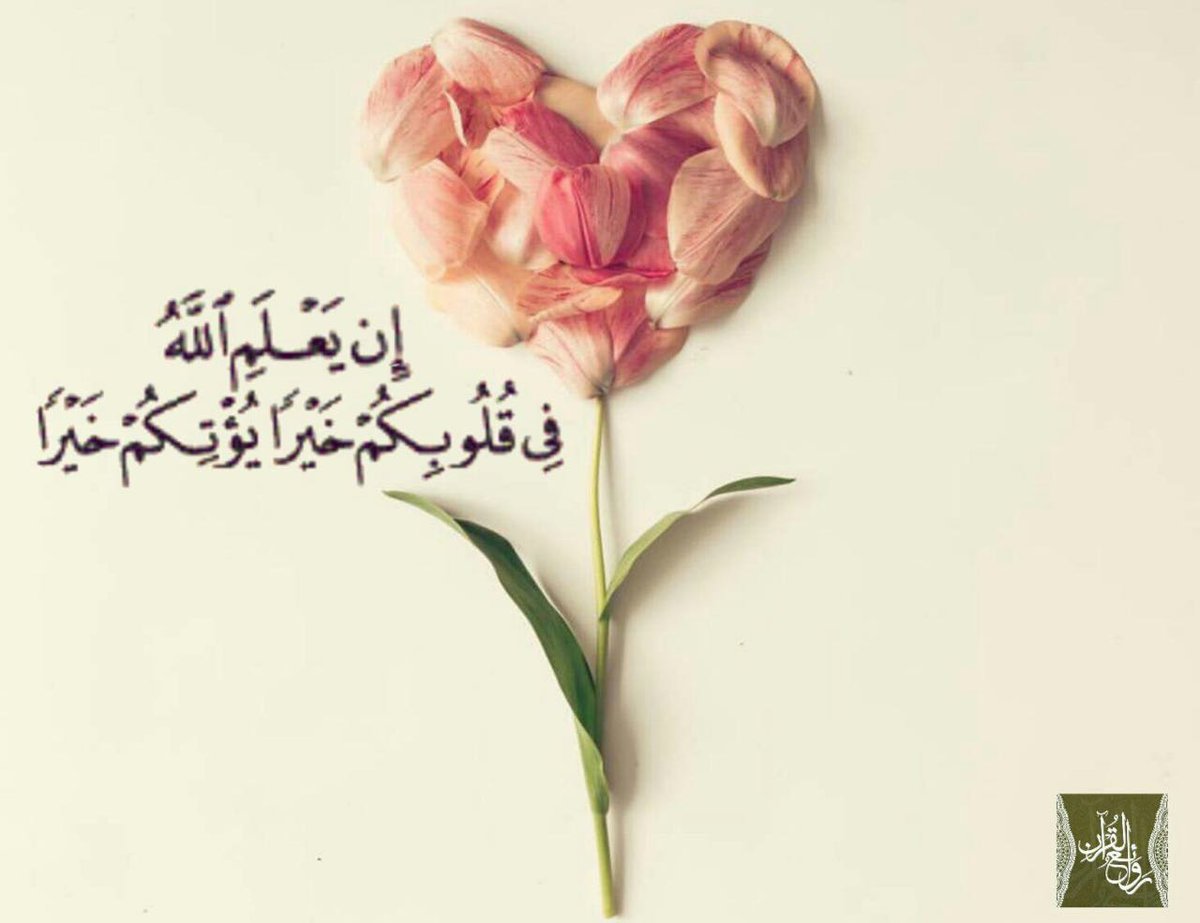 إِن يَعْلَمِ ٱللَّهُ
فِى قُلُوبِكُمْ خَيْرًا يُؤْتِكُمْ خَيْرًا
روائع القرآن